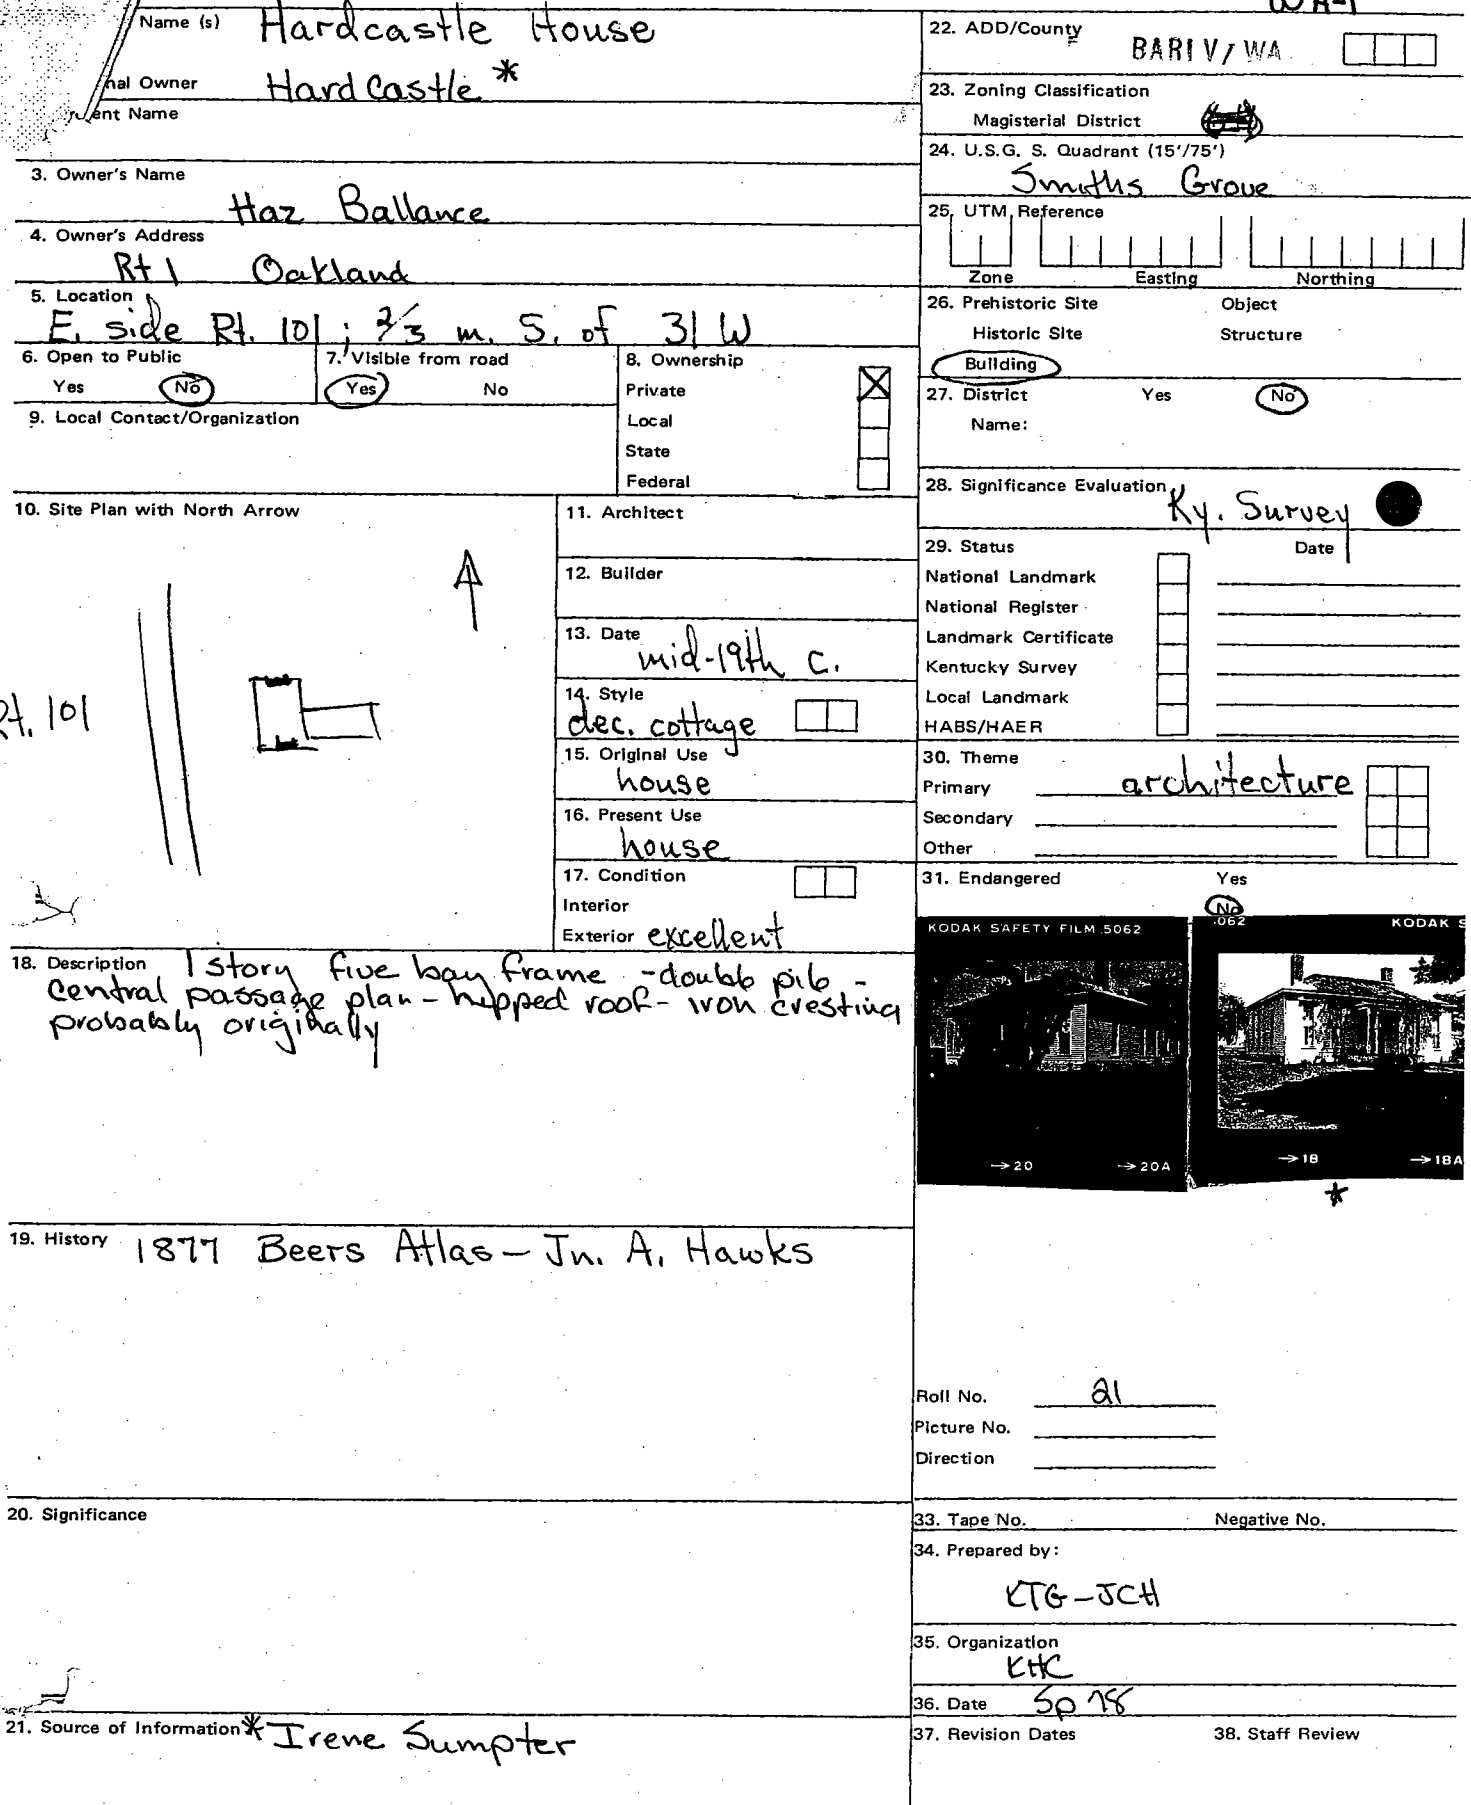 Name (s) Hardcastle House
nal Owner Hardcastle *
ent Name
3. Owner's Name
Haz Ballance
4. Owner's Address
Rt 1 Oakland
5. Location
E. side Rt. 101; 2/3 m. S. of 31 W
6. Open to Public
Yes No
7. Visible from road
Yes No
8. Ownership
Private
Local
State
Federal
9. Local Contact/Organization
10. Site Plan with North Arrow
Rt. 101
11. Architect
12. Builder
13. Date
mid-19th c.
14. Style
dec. cottage
15. Original Use
house
16. Present Use
house
17. Condition
Interior
Exterior excellent
18. Description 1 story five bay frame - double pile -
central passage plan - hipped roof - iron cresting
probably originally
19. History 1877 Beers Atlas - Jn. A. Hawks
20. Significance
21. Source of Information * Irene Sumpter
22. ADD/County
WA
23. Zoning Classification
Magisterial District
24. U.S.G. S. Quadrant (15'/75')
Smiths Grove
25. UTM Reference
Zone Easting Northing
26. Prehistoric Site Object
Historic Site Structure
Building
27. District Yes No
Name:
28. Significance Evaluation
Ky. Survey
29. Status Date
National Landmark
National Register
Landmark Certificate
Kentucky Survey
Local Landmark
HABS/HAER
30. Theme
Primary architecture
Secondary
Other
31. Endangered Yes
No
KODAK SAFETY FILM 5062
062 KODAK S
→20 →20A
→18 →18A
*
Roll No. 21
Picture No.
Direction
33. Tape No. Negative No.
34. Prepared by:
KTG-JCH
35. Organization
KHC
36. Date Sp 78
37. Revision Dates 38. Staff Review